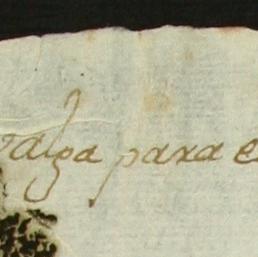 valga para e